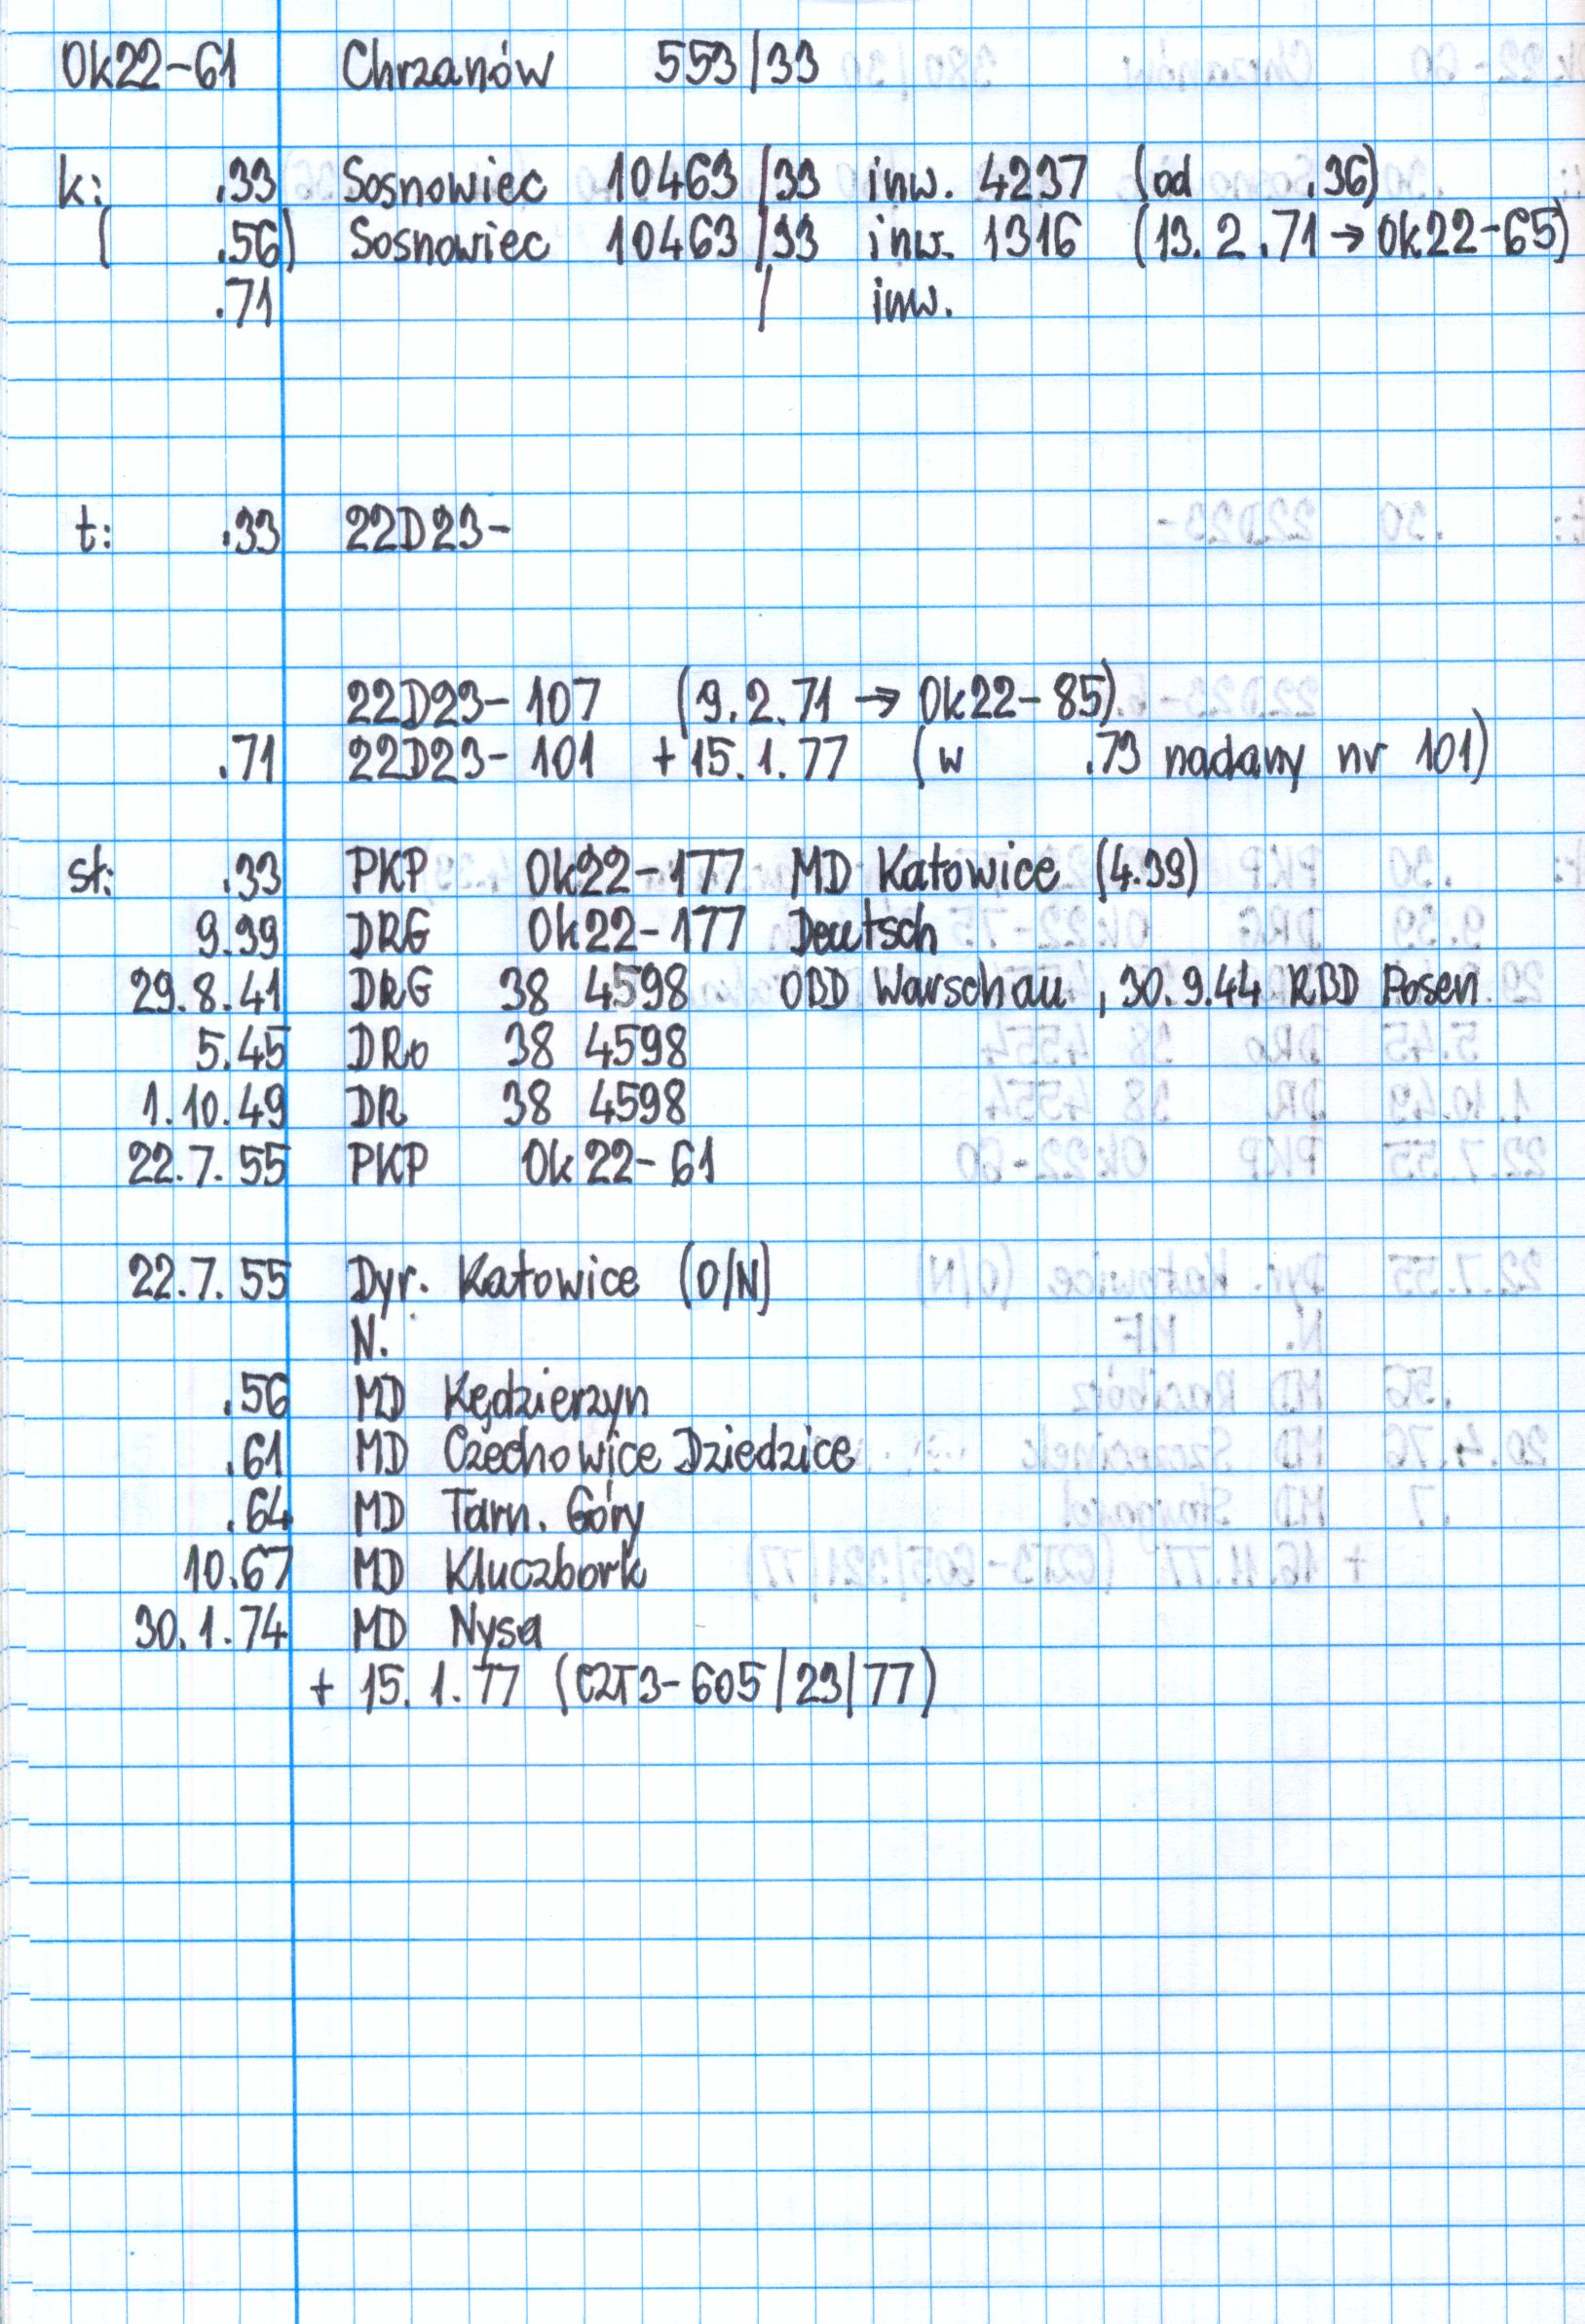 Ok22-61 Chrzanów 553/33
k: .33 Sosnowiec 10463/33 inw. 4237 (od .36)
( .56) Sosnowiec 10463/33 inw. 1316 (13.2.71 → Ok22-65)
.71 / inw.
t: .33 22D23-
22D23-107 (9.2.71 → Ok22-85)
.71 22D23-101 +15.1.77 (w .73 nadany nr 101)
st: .33 PKP Ok22-177 MD Katowice (4.39)
9.39 DRG Ok22-177 Deutsch
29.8.41 DRG 38 4598 OBD Warschau, 30.9.44 RBD Posen
5.45 DRo 38 4598
1.10.49 DR 38 4598
22.7.55 PKP Ok22-61
22.7.55 Dyr. Katowice (O/N)
N.
.56 MD Kędzierzyn
.61 MD Czechowice Dziedzice
.64 MD Tarn. Góry
10.67 MD Kluczbork
30.1.74 MD Nysa
+ 15.1.77 (CZT3-605/23/77)